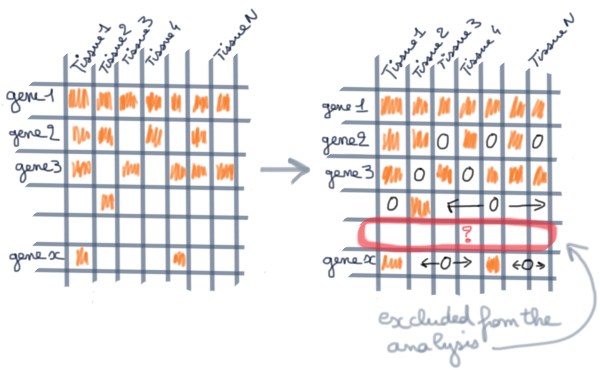 Tissue1 Tissue2 Tissue3 Tissue4 TissueN
gene1
gene2
gene3
genex
Tissue1 Tissue2 Tissue3 Tissue4 TissueN
gene1
gene2 0 0 0
gene3 0 0
0 0
?
genex 0 0
excluded from the
analysis